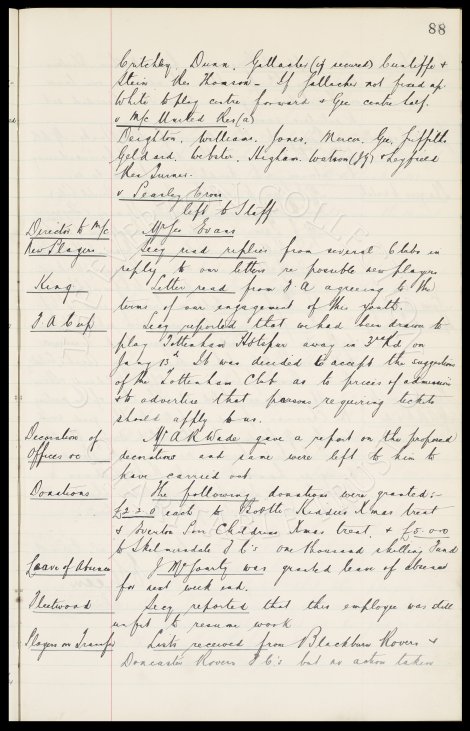 88
Critchley. Dunn. Gallacher (if secured) Cunliffe &
Stein Res Thomson - If Gallacher not fixed up
White to play centre forward & Gee centre half.
v M/c United Res (a)
Deighton. Williams. Jones. Mercer. Gee. Griffiths
Geldard. Webster. Higham. Watson (JG) & Leyfield
Res Turner.
v Stanley Cross
left to Staff
Director to M/c Mr Geo Evans
New Players Secy read replies from several Clubs in
reply to our letters re possible new players
King Letter read from F A agreeing to the
terms of our engagement of this youth.
F A Cup Secy reported that we had been drawn to
play Tottenham Hotspur away in 3rd Rd on
Jany 13th. It was decided to accept the suggestions
of the Tottenham Club as to prices of admission
& to advertise that persons requiring tickets
should apply to us.
Decoration of Mr A R Wade gave a report on the proposed
Offices &c decorations and same were left to him to
have carried out
Donations The following donations were granted:-
£2.2.0 each to Bootle Kiddies Xmas treat
& Everton Poor Childrens Xmas treat. & £5.0.0
to Skelmersdale F C's one thousand shilling Fund
Leave of Absence J McGourty was granted leave of absence
for next week end.
Fleetwood Secy reported that this employee was still
unfit to resume work
Players on Transfer Lists received from Blackburn Rovers &
Doncaster Rovers F C's but no action taken